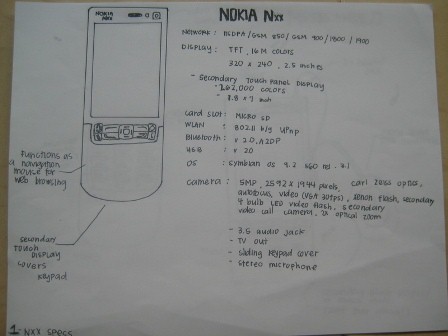 NOKIA Nxx
NOKIA
Nxx
NETWORK : HSDPA/GSM 850/GSM 900/1800/1900
DISPLAY : TFT, 16M COLORS
320 x 240, 2.5 inches
- Secondary Touch Panel Display
262,000 colors
- 1 inch
Card slot : Micro SD
WLAN : 802.11 b/g UPnP
Bluetooth : v 2.0, A2DP
USB : v 2.0
OS : Symbian OS 9.2 S60 rd. 3.1
Camera : 5MP, 2592 x 1944 pixels, Carl Zeiss optics,
autofocus, video (VGA 30fps), xenon flash, secondary
4 bulb LED video flash, secondary
video call camera, 2x optical zoom
- 3.5 audio jack
- TV out
- Sliding keypad cover
- Stereo microphone
Functions as
a navigation
mouse for
web browsing
Secondary
Touch
Display
covers
keypad
1- Nxx specs